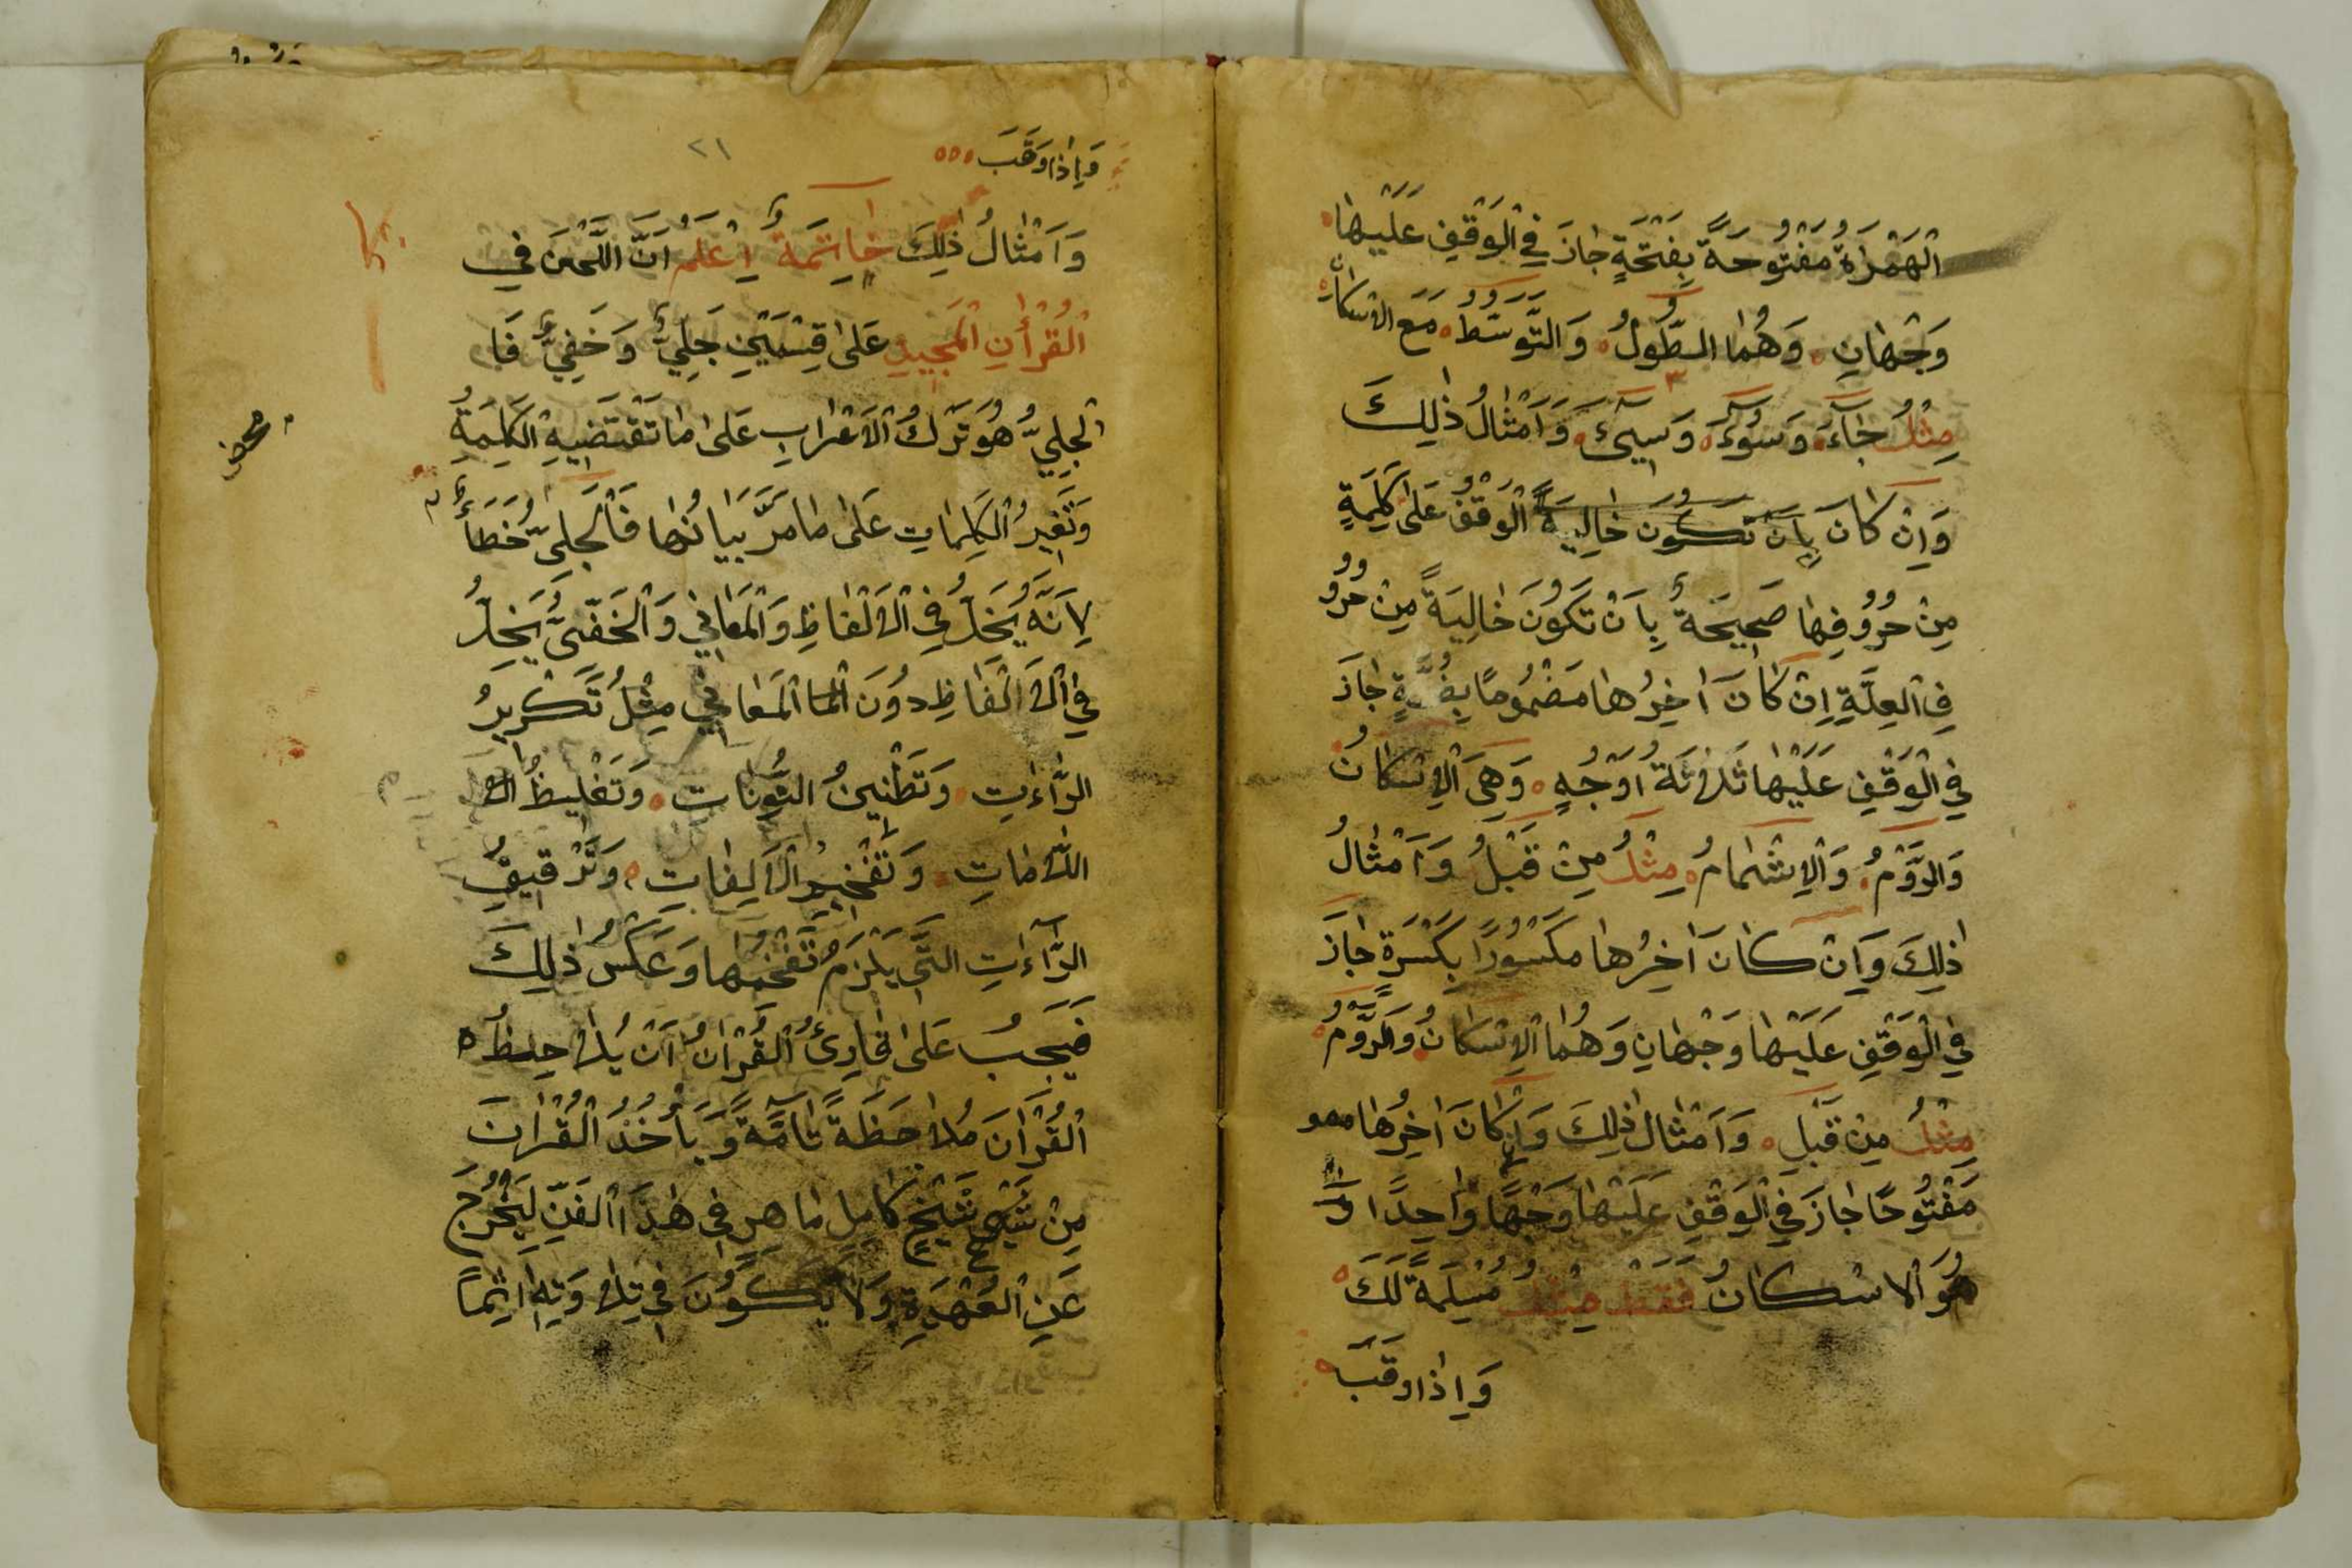 الْهَمْزَةُ مَفْتُوحَةً بِفَتْحَةٍ جَازَ فِي الْوَقْفِ عَلَيْهَا
وَجْهَانِ وَهُمَا الطُّولُ وَالتَّوَسُّطُ مَعَ الاسْكَانِ
مِثْلُ جَاءَ وَسُوءَ وَسِيءَ وَاَمْثَالُ ذٰلِكَ
وَاِنْ كَانَ بِاَنْ تَكُونَ خَالِيَةً الْوَقْفُ عَلٰى كَلِمَةٍ
مِنْ حُرُوفِهَا صَحِيحَةٌ بِاَنْ تَكُونَ خَالِيَةً مِنْ حُرُو
فِ الْعِلَّةِ اِنْ كَانَ اٰخِرُهَا مَضْمُومًا بِضَمَّةٍ جَازَ
فِي الْوَقْفِ عَلَيْهَا ثَلَاثَةُ اَوْجُهٍ وَهِيَ الْاِسْكَانُ
وَالرَّوْمُ وَالْاِشْمَامُ مِثْلُ مِنْ قَبْلُ وَاَمْثَالُ
ذٰلِكَ وَاِنْ كَانَ اٰخِرُهَا مَكْسُورًا بِكَسْرَةٍ جَازَ
فِي الْوَقْفِ عَلَيْهَا وَجْهَانِ وَهُمَا الْاِسْكَانُ وَالرَّوْمُ
مِثْلُ مِنْ قَبْلِ وَاَمْثَالُ ذٰلِكَ وَاِنْ كَانَ اٰخِرُهَا
مَفْتُوحًا جَازَ فِي الْوَقْفِ عَلَيْهَا وَجْهًا وَاحِدًا وَ
هُوَ الاسْكَانُ فَقَطْ مِثْلُ مُسْلِمَةً لَكَ
وَاِذَا وَقَبَ
وَاِذَا وَقَبَ
٢١
وَاَمْثَالُ ذٰلِكَ خَاتِمَةٌ اِعْلَمْ اَنَّ اللَّحْنَ فِي
الْقُرْاٰنِ الْمَجِيدِ عَلٰى قِسْمَيْنِ جَلِيٌّ وَخَفِيٌّ فَا
لْجَلِيُّ هُوَ تَرْكُ الْاَعْرَابِ عَلٰى مَا تَقْتَضِيهِ الْكَلِمَةُ
وَتَغْيِرُ الْكَلِمَاتِ عَلٰى مَا مَرَّ بَيَانُهَا فَالْجَلِيُّ خَطَأٌ
لِاَنَّهُ يُخِلُّ فِي الْاَلْفَاظِ وَالْمَعَانِي وَالْخَفِيُّ يُخِلُّ
فِي الْاَلْفَاظِ دُونَ الْمَعَانِي مِثْلُ تَكْرِيرُ
الرَّاءَتِ وَتَطْنِينُ النُّونَاتِ وَتَغْلِيظُ ال
اللَّامَاتِ وَتَفْخِيمُ الْاَلِفَاتِ وَتَرْقِيقُ
الرَّاءَاتِ الَّتِي يَلْزَمُ تَفْخِمُهَا وَعَكْسُ ذٰلِكَ
فَيَجِبُ عَلٰى قَارِئُ الْقُرْاٰنُ اَنْ يُلَاحِظُ
الْقُرْاٰنَ مُلَاحَظَةً تَامَّةً وَيَأْخُذُ الْقُرْاٰنَ
مِنْ شَيْخٍ كَامِلٍ مَاهِرٍ فِي هٰذَا الْفَنِّ لِيَخْرُجَ
عَنِ الْعُهْدَةِ وَلَا يَكُونَ فِي تِلَاوَتِهِ اٰثِمًا